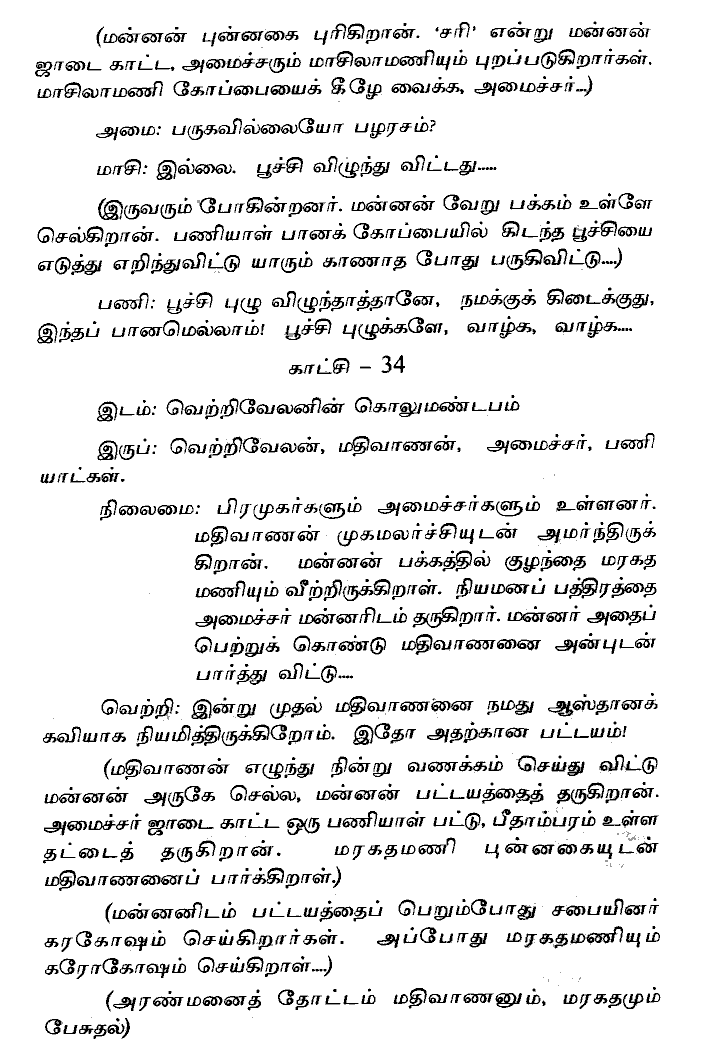 (மன்னன் புன்னகை புரிகிறான். ‘சரி’ என்று மன்னன்
ஜாடை காட்ட, அமைச்சரும் மாசிலாமணியும் புறப்படுகிறார்கள்.
மாசிலாமணி கோப்பையைக் கீழே வைக்க, அமைச்சர்...)
அமை: பருகவில்லையோ பழரசம்?
மாசி: இல்லை. பூச்சி விழுந்து விட்டது.....
(இருவரும் போகின்றனர். மன்னன் வேறு பக்கம் உள்ளே
செல்கிறான். பணியாள் பானக் கோப்பையில் கிடந்த பூச்சியை
எடுத்து எறிந்துவிட்டு யாரும் காணாத போது பருகிவிட்டு....)
பணி: பூச்சி புழு விழுந்தாத்தானே, நமக்குக் கிடைக்குது,
இந்தப் பானமெல்லாம்! பூச்சி புழுக்களே, வாழ்க, வாழ்க....
காட்சி – 34
இடம்: வெற்றிவேலனின் கொலுமண்டபம்
இருப்: வெற்றிவேலன், மதிவாணன், அமைச்சர், பணி
யாட்கள்.
நிலைமை: பிரமுகர்களும் அமைச்சர்களும் உள்ளனர்.
மதிவாணன் முகமலர்ச்சியுடன் அமர்ந்திருக்
கிறான். மன்னன் பக்கத்தில் குழந்தை மரகத
மணியும் வீற்றிருக்கிறாள். நியமனப் பத்திரத்தை
அமைச்சர் மன்னரிடம் தருகிறார். மன்னர் அதைப்
பெற்றுக் கொண்டு மதிவாணனை அன்புடன்
பார்த்து விட்டு....
வெற்றி: இன்று முதல் மதிவாணனை நமது ஆஸ்தானக்
கவியாக நியமித்திருக்கிறோம். இதோ அதற்கான பட்டயம்!
(மதிவாணன் எழுந்து நின்று வணக்கம் செய்து விட்டு
மன்னன் அருகே செல்ல, மன்னன் பட்டயத்தைத் தருகிறான்.
அமைச்சர் ஜாடை காட்ட ஒரு பணியாள் பட்டு, பீதாம்பரம் உள்ள
தட்டைத் தருகிறான். மரகதமணி புன்னகையுடன்
மதிவாணனைப் பார்க்கிறாள்.)
(மன்னனிடம் பட்டயத்தைப் பெறும்போது சபையினர்
கரகோஷம் செய்கிறார்கள். அப்போது மரகதமணியும்
கரோகோஷம் செய்கிறாள்....)
(அரண்மனைத் தோட்டம் மதிவாணனும், மரகதமும்
பேசுதல்)